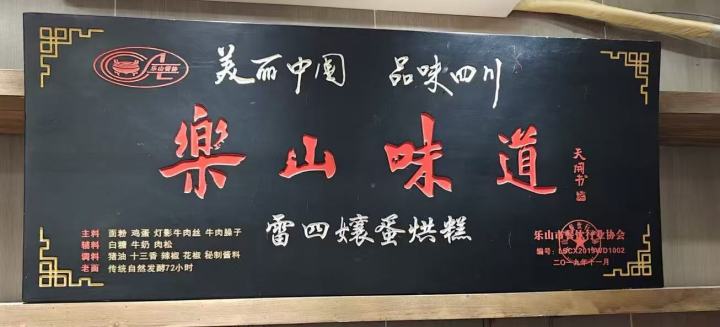 乐山餐协
美丽中国 品味四川
樂山味道
天闻书
雷四孃蛋烘糕
主料 面粉 鸡蛋 灯影牛肉丝 牛肉臊子
辅料 白糖 牛奶 肉松
调料 猪油 十三香 辣椒 花椒 秘制酱料
老面 传统自然发酵72小时
乐山市餐饮行业协会
编号:LSCX2019WD1002
二〇一九年十一月